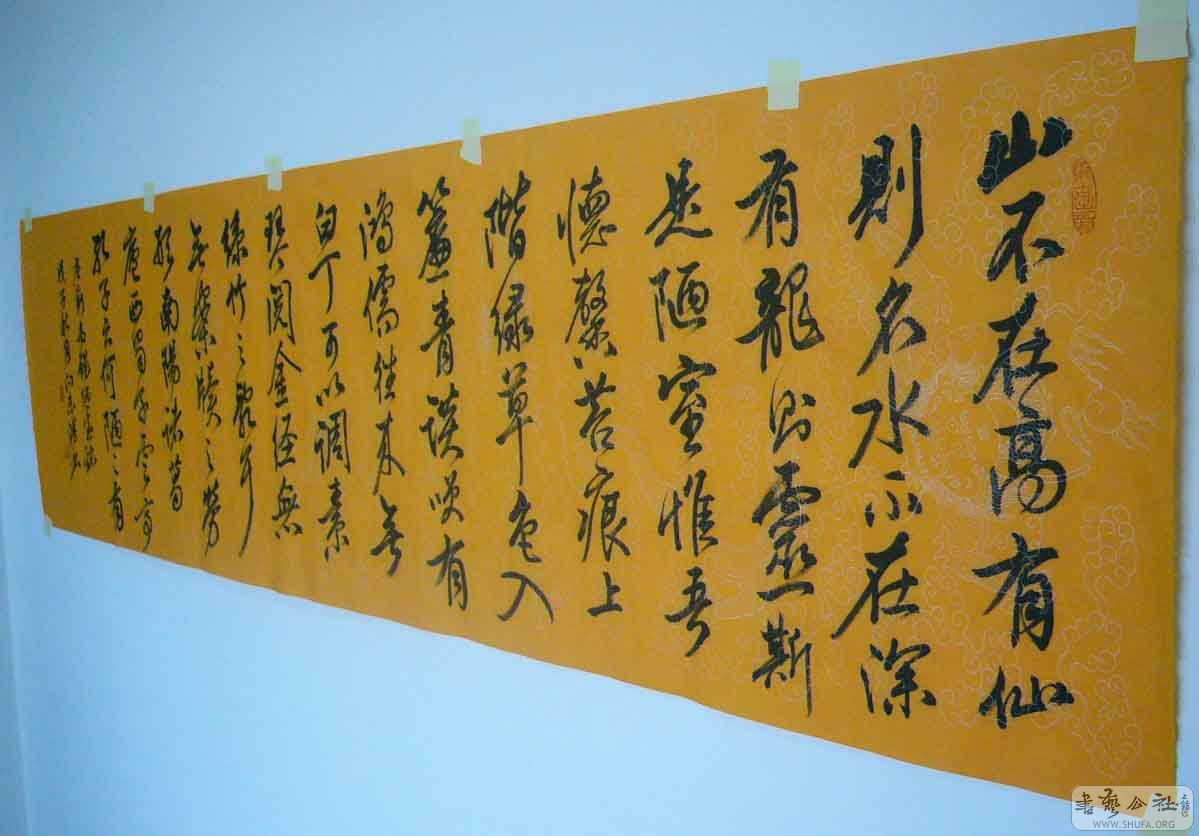 山不在高有仙
則名水不在深
有龍則靈斯
是陋室惟吾
德馨苔痕上
階綠草色入
簾青談笑有
鴻儒往來無
白丁可以調素
琴閱金經無
絲竹之亂耳
無案牘之勞
形南陽諸葛
廬西蜀子雲亭
孔子云何陋之有
唐劉禹錫陋室銘
戊子秋月
書藝公社
WWW.SHUFA.ORG